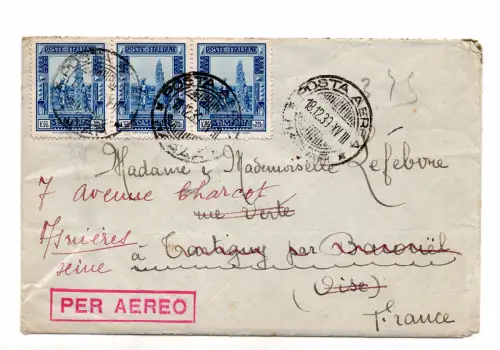 POSTE ITALIANE POSTE ITALIANE POSTE ITALIANE
SOMALIA SOMALIA SOMALIA
POSTA AEREA
18.12.39.XVIII
375
Madame & Mademoiselle Lefebvre
7 avenue Charcot
rue Verte
Asnières
à Tartigny par Bacouël
seine
(Oise)
PER AEREO
France